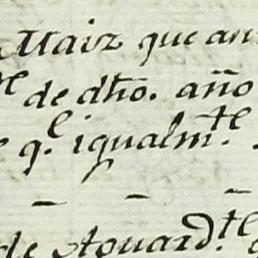 Maiz que an
de dho. año
q.e igualm.te
de Aguard.te